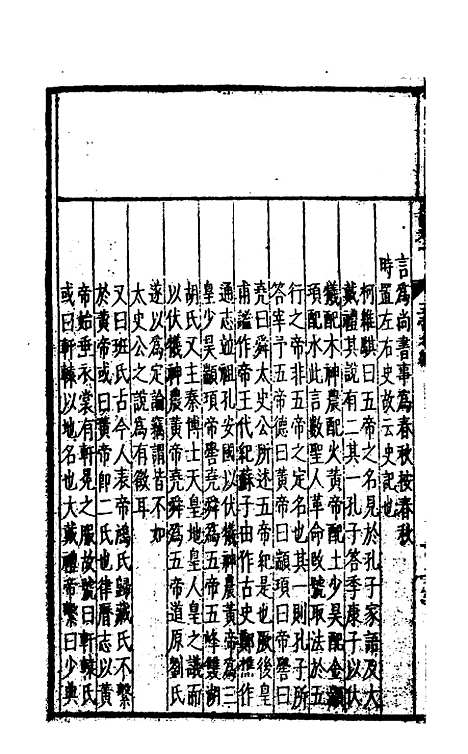 言為尚書事為春秋按春秋
時置左右史故云史記也
柯維騏曰五帝之名見於孔子家語及大
戴禮其說有二其一孔子答季康子以伏
犧配木神農配火黃帝配土少昊配金顓
頊配水此言數聖人革命改號取法於五
行之帝非五帝之定名也其一則孔子所
答宰予五帝德曰黃帝曰顓頊曰帝嚳曰
堯曰舜太史公所述五帝紀是也厥後皇
甫謐作帝王代紀蘇子由作古史鄭樵作
通志並祖孔安國以伏犧神農黃帝為三
皇少昊顓頊帝嚳堯舜為五帝五峰雙湖
胡氏又主秦博士天皇地皇人皇之議而
以伏犧神農黃帝堯舜為五帝道原劉氏
遂以為定論竊謂皆不如
太史公之說為有徵耳
又曰班氏古今人表帝鴻氏歸藏氏不繫
於黃帝或曰黃帝即二氏也律曆志以黃
帝始垂衣裳有軒冕之服故號曰軒轅氏
或曰軒轅以地名也大戴禮帝繫曰少典